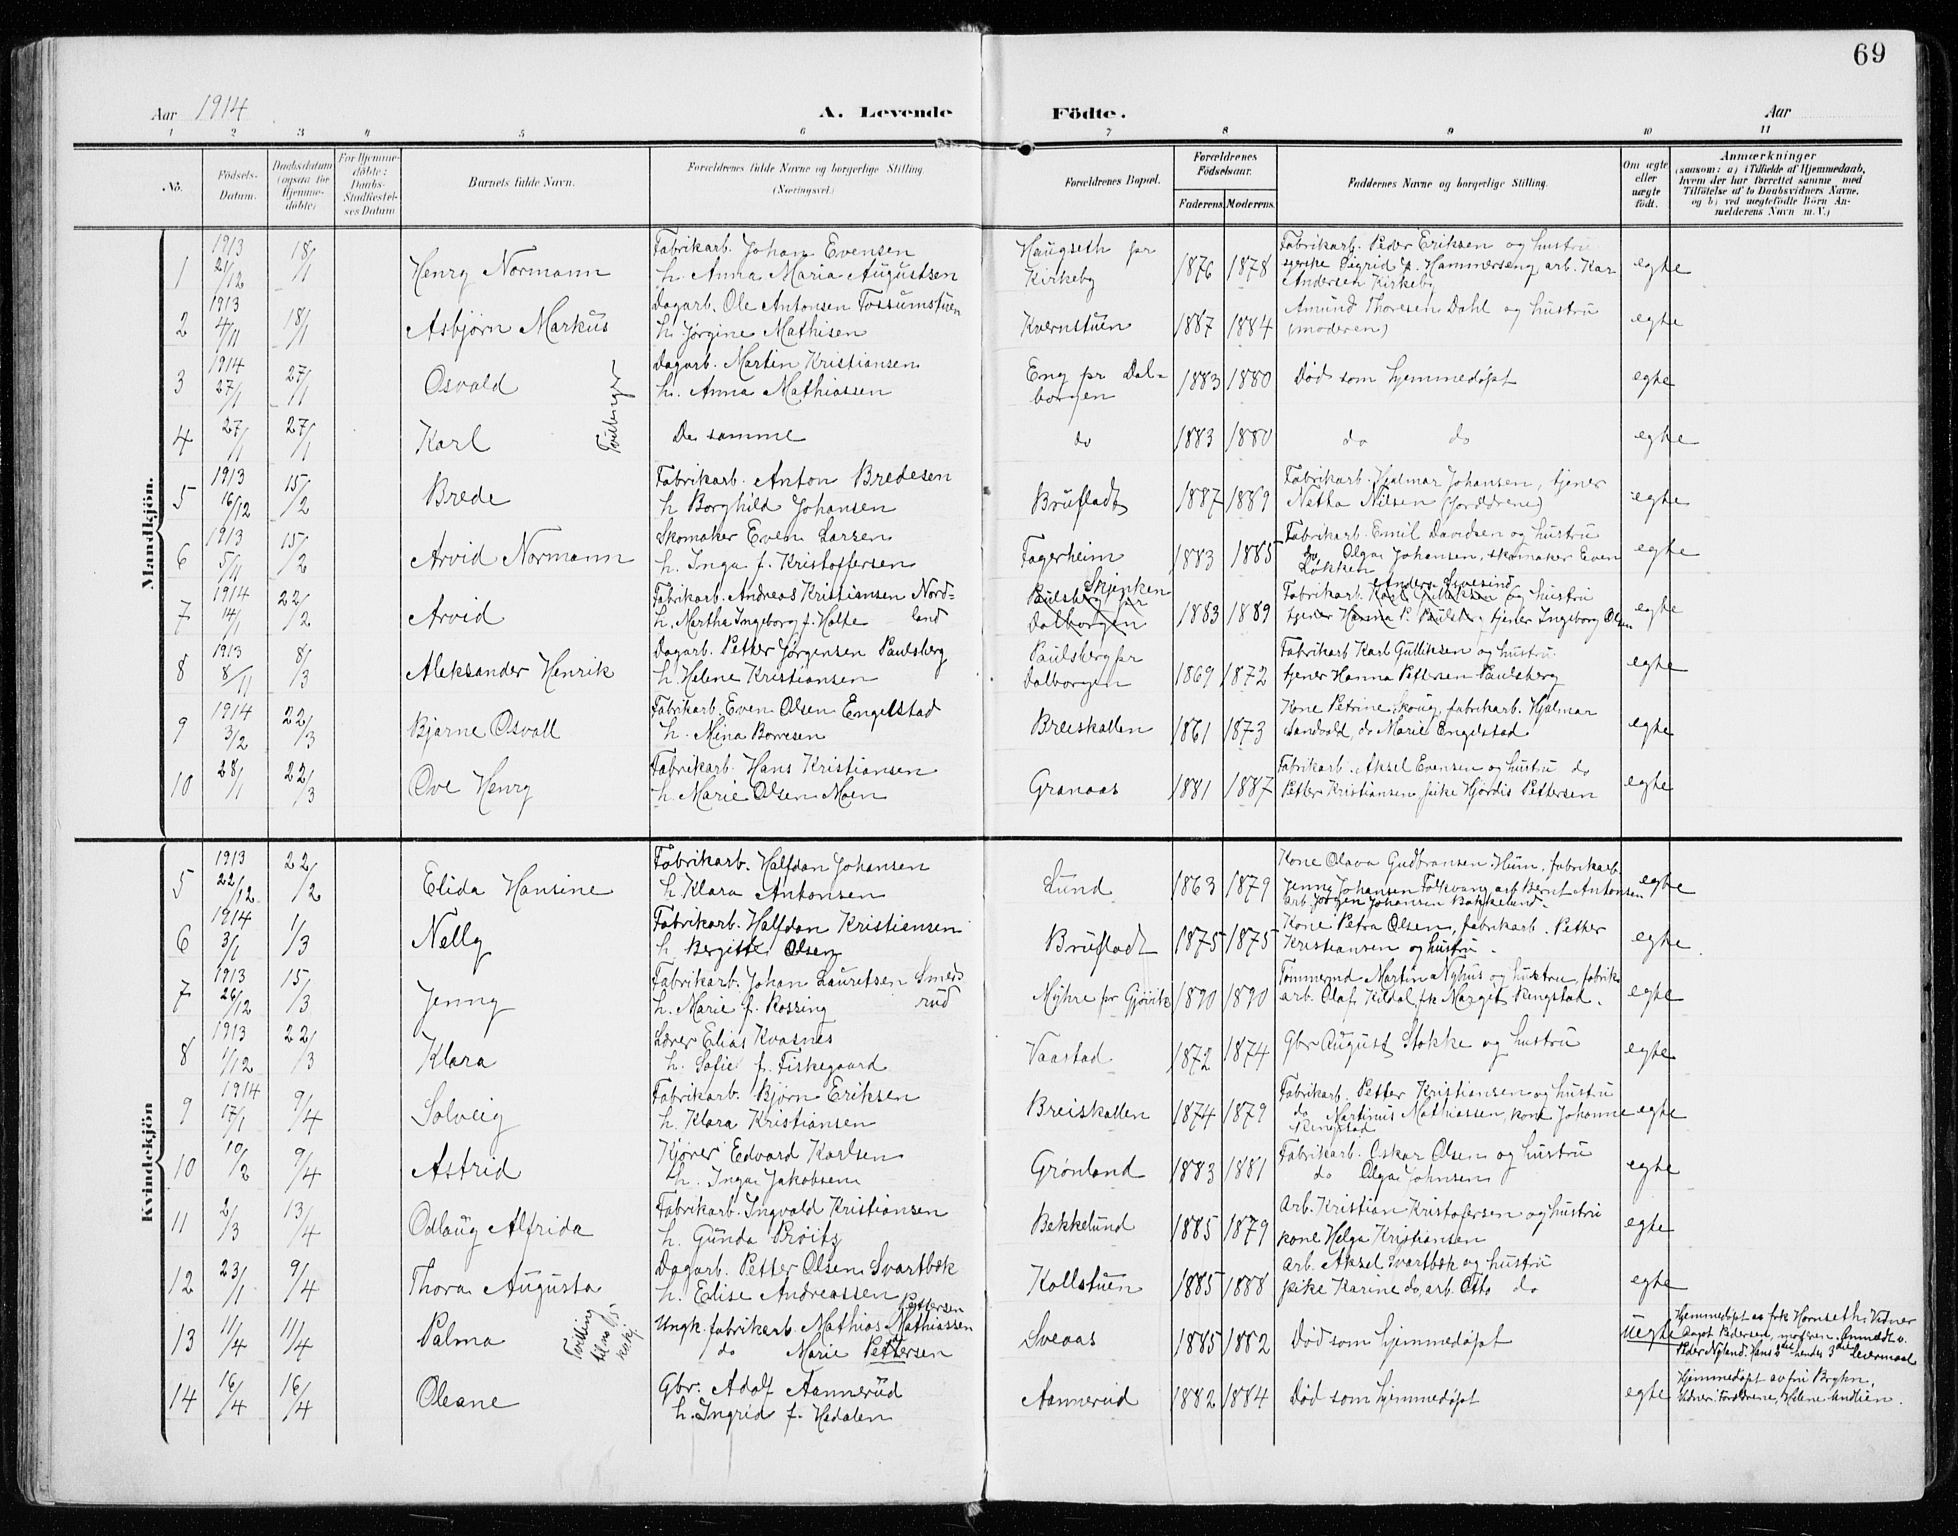 69
Aar 1914 A. Levende Födte. Aar
1 2 3 4 5 6 7 8 9 10 11
No. Födsels-Datum. Daabsdatum (ogsaa for Hjemme-döbte) For Hjemme-döbte: Daabs-Stadfæstel-ses Datum Barnets fulde Navn. Forældrenes fulde Navne og borgerlige Stilling (Næringsvei.) Forældrenes Bopæl. Forældrenes Födselsaar. Faderens. Moderens. Faddernes Navne og borgerlige Stilling. Om ægte eller uægte födt. Anmærkninger (saasom: a) i Tilfælde af Hjemmedaab, hvem der har forrettet samme med Tilföielse af to Daabsvidners Navne, og b) ved uægtefödte Börn An-melderens Navn m. V.)
Mandkjön.
1 1913 21/12 18/1 Henry Normann Fabrikarb. Johan Evensen
h. Anna Maria Augustsen Haugseth pr Kirkeby 1876 1878 Fabrikarb. Peder Eriksen og hustru
Sigrid p. Hammerseng, arb. Kar
Andersen Kirkeby egte
2 1913 4/11 18/1 Asbjørn Markus Dagarb. Ole Antonsen Fossumstuen
h. Jørgine Mathisen Kvernstuen 1887 1884 Amund Thoresen Dahl og hustru
(moderen) egte
3 1914 27/1 27/1 Osvald Tvillinger Dagarb. Martin Kristiansen
h. Anna Mathiassen Eng pr Dal-
borgen 1883 1880 Død som hjemmedøpt egte
4 27/1 27/1 Karl De samme do 1883 1880 do do egte
5 1913 16/12 15/2 Brede Fabrikarb. Anton Bredesen
h Borghild Johansen Brufladt 1887 1889 Fabrikarb. Hjalmar Johansen, tjener
Netha Nilsen (forældrene) egte
6 1913 5/11 15/2 Arvid Normann Skomaker Even Larsen
h. Inga f. Kristoffersen Fagerheim 1883 1885 Fabrikarb. Emil Davidsen og hustru
do Olga Johansen, skomaker Even
Løkken egte
7 1914 14/1 22/2 Arvid Fabrikarb. Andreas Kristiansen Nord-
h. Martha Ingeborg f. Holte land Skjenken
Paulsberg pr
Dalborgen 1883 1889 Anders Svesind
Fabrikarb. Karl Gulliksen og hustru
tjener Hanna P. Paulsb. tjener Ingeborg Olsen egte
8 1913 8/11 8/3 Aleksander Henrik Dagarb. Petter Jørgensen Paulsberg
h. Helene Kristiansen Paulsberg pr
Dalborgen 1869 1872 Fabrikarb Karl Gulliksen og hustru
tjener Hanna Pettersen Paulsberg egte
9 1914 3/2 22/3 Bjarne Osvall Fabrikarb. Even Olsen Engelstad
h. Mina Borresen Breiskallen 1861 1873 Kone Petrine Skoug, fabrikarb. Hjalmar
Sandvold, do Marie Engelstad egte
10 28/1 22/3 Ove Henry Fabrikarb. Hans Kristiansen
h. Marie Olsen Moen Granaas 1881 1887 Fabrikarb. Aksel Evensen og hustru do
Petter Kristiansen pike Hjørdis Pettersen egte
Kvindekjön
5 1913 22/12 22/2 Elida Hansine Fabrikarb. Halfdan Johansen
h Klara Antonsen Lund 1863 1879 Kone Olava Gudbransen Hum, fabrikarb.
Jenny Johansen Folkvang, arb Bernt Antonsen
arb. Jørgen Johansen Bakkelund. egte
6 1914 3/1 1/3 Nelly Fabrikarb. Halfdan Kristiansen
h. Bergitte Olsen Brufladt 1875 1875 Kone Petra Olsen, fabrikarb. Petter
Kristiansen og hustru. egte
7 1913 26/12 15/3 Jenny Fabrikarb. Johan Lauritsen Smeds-
h. Marie f. Rossing rud Myhre pr Gjøvik 1890 1890 Tømmermd Martin Nyhus og hustru, fabrik
arb. Olaf Kildal, frk Margit Ringstad. egte
8 1913 1/12 22/3 Klara Lærer Elias Kvasnes
h. Sofie f. Fiskegaard Vaastad 1872 1874 Gbr August Stokke og hustru egte
9 1914 17/1 9/4 Solveig Fabrikarb. Bjørn Eriksen
h. Klara Kristiansen Breiskallen 1874 1879 Fabrikarb. Petter Kristiansen og hustru
do Martinus Mathiassen, kone Johanne
Ringstad egte
10 10/2 9/4 Astrid Kjører Edvard Karlsen
h. Inga Jakobsen Grønland 1883 1881 Fabrikarb. Oskar Olsen og hustru
do Olga Johnsen egte
11 2/3 13/4 Odlaug Alfrida Fabrikarb. Ingvald Kristiansen
h. Gunda Prøitz Bekkelund 1885 1879 Arb. Kristian Kristofersen og hustru
kone Helga Kristiansen egte
12 23/1 9/4 Thora Augusta Dagarb. Petter Olsen Svartbæk
h. Elise Andreassen Kollstuen 1885 1888 arb. Aksel Svartbæk og hustru
pike Karine do, arb. Otto do egte
13 11/4 11/4 Palma Tvilling Pettersen
Ungk. fabrikarb. Mathias Mathiassen
do Marie Pettersen Sveaas 1885 1882 Død som hjemmedøpt Uegte Hjemmedøpt av frk Hornseth, Vidner
Aagot Pedersen, moderen. Anmeldt v.
Peder Nyland. Hans 2det hendes 3die Leiermaal
14 16/4 16/4 Oleane Gbr. Adolf Aannerud
h. Ingrid f. Hedalen Aannerud 1882 1884 Død som hjemmedøpt egte Hjemmedøpt av fru Bryhn,
Vidner: Forældrene, Helene